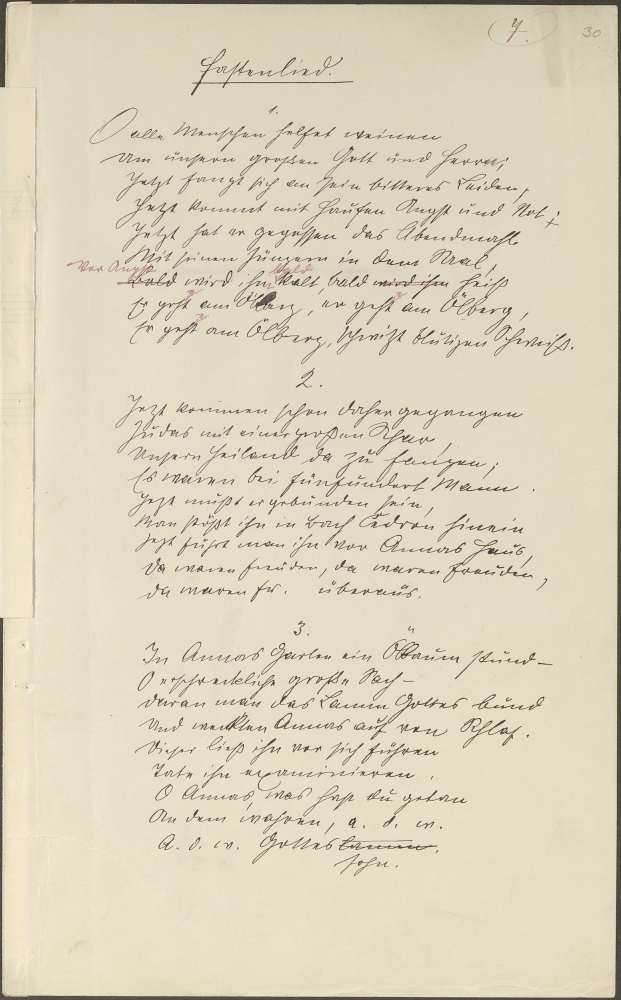 7. 30
Fastenlied.
1.
O alle Menschen helfet weinen
Um unsern großen Gott und Herrn;
Jetzt fangt sich an sein bitteres Leiden,
Jetzt kommt mit Haufen Angst und Not;
Jetzt hat er gegessen das Abendmahl
Mit seinen Jüngern in dem Saal,
Vor Angst bald
Bald wird ihm kalt, bald wird ihm heiß
Er geht am Ölberg, er geht am Ölberg,
Er geht am Ölberg, schwitzt blutigen Schweiß.
2.
Jetzt kommen schon dahergegangen
Judas mit einer großen Schar,
Unsern Heiland da zu fangen;
Es waren bei fünfhundert Mann.
Jetzt mußt er gebunden sein,
Man stößt ihn in Bach Cedron hinein
Jetzt führt man ihn vor Annas Haus,
Da waren Freuden, da waren Freuden,
da waren Fr. überaus.
3.
In Annas Garten ein Ölbaum stund –
O erschreckliche große Sach –
Daran man das Lamm Gottes bund
Und weckten Annas auf von Schlaf.
Dieser ließ ihn vor sich führen
Tate ihn examinieren.
O Annas, was hast du getan
An dem wahren, a. d. w.
A. d. w. Gotteslamm.
sohn.